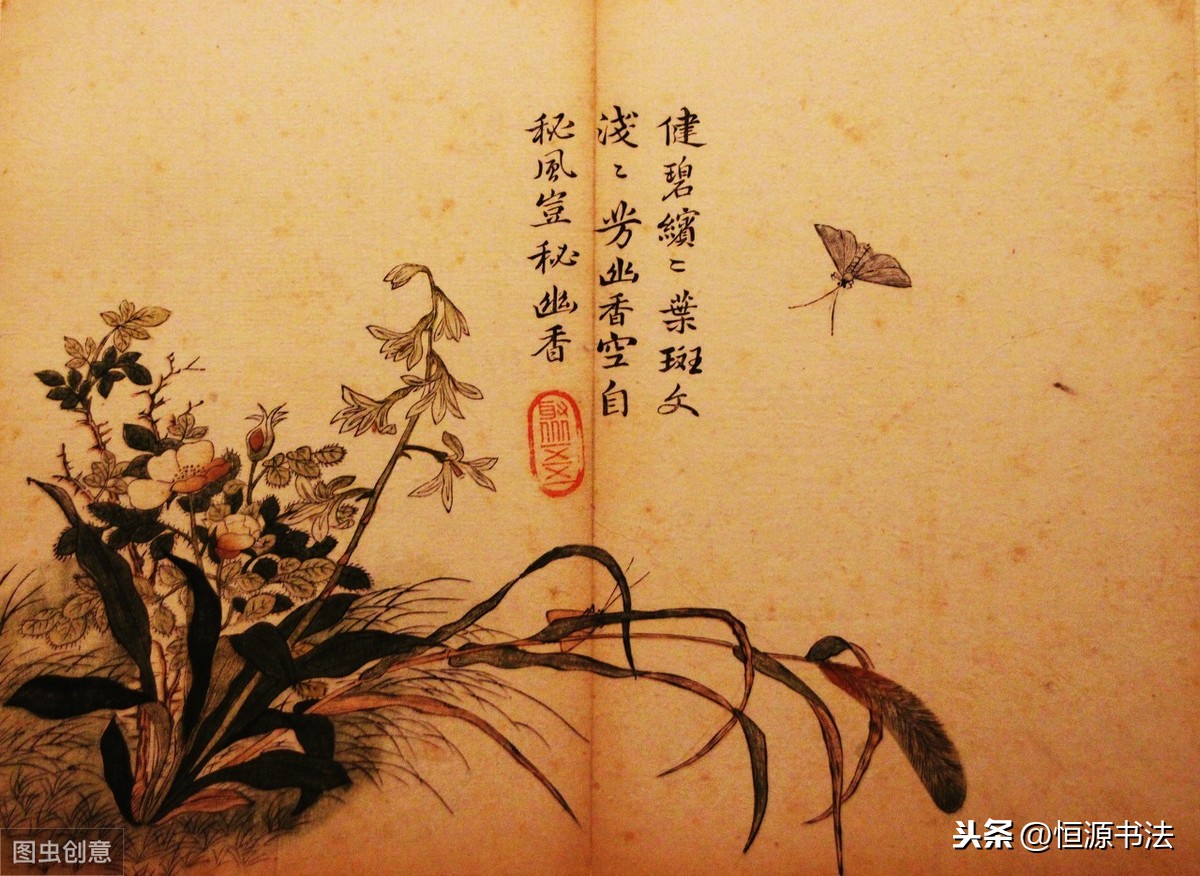 健碧繽〻葉斑文
淺〻芳幽香空自
秘風豈秘幽香
图虫创意
头条@恒源书法